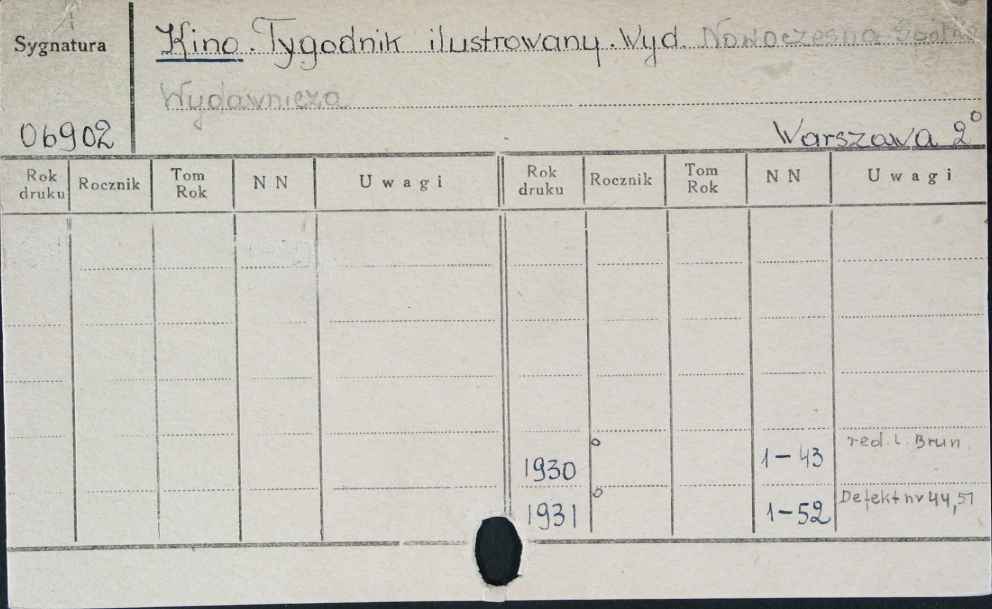 Sygnatura
Kino. Tygodnik ilustrowany. Wyd. Nowoczesna Spółka
Wydawnicza
06902
Warszawa 2°
Rok druku Rocznik Tom Rok N N Uwagi Rok druku Rocznik Tom Rok N N Uwagi
1930 ° 1–43 red. L. Brun.
1931 ° 1–52 Defekt nr 44, 51